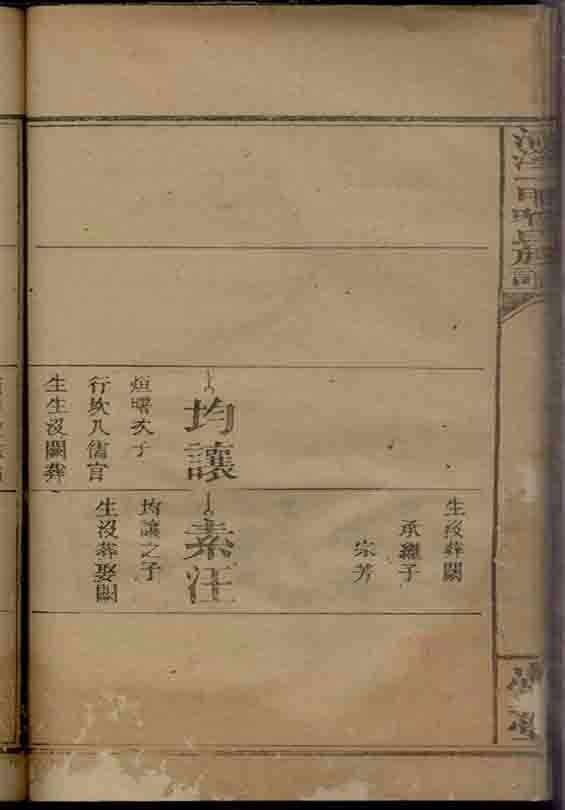 均讓
烜曙次子
行坎八儒官
生生沒闕葬
生沒葬闕
承繼子
宗芳
素汪
均讓之子
生沒葬娶闕